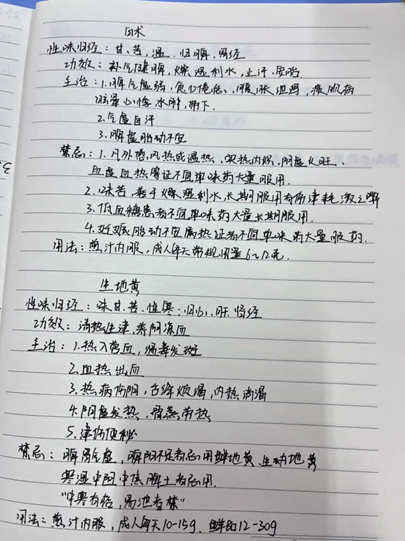 白术
性味归经：甘、苦，温，归脾、胃经
功效：补气健脾，燥湿利水，止汗，安胎
主治：1.脾气虚弱，食少倦怠、腹胀泄泻，痰饮病
心悸，水肿，带下
2.气虚自汗
3.脾虚胎动不安
禁忌：1.凡外感风热或温热、实热内炽，阴虚火旺、
血虚血热等证不宜单味药大量服用.
2.味苦、善于燥湿利水，长期服用有伤津耗液之弊
3.低血糖患者不宜单味药大量长期服用.
4.妊娠胎动不安属热证者不宜单味药大量服药.
用法：煎汁内服，成人每天常规用量6~12克.
生地黄
性味归经：味甘、苦，性寒；归心、肝、肾经
功效：清热生津，养阴凉血
主治：1.热入营血，温毒发斑
2.血热出血
3.热病伤阴，舌绛烦渴，内热消渴
4.阴虚发热，骨蒸劳热
5.津伤便秘
禁忌：脾胃气虚，忌用鲜地黄、生地黄
寒湿中阻
用法：煎汁内服，成人每天10-15g，鲜品12-30g